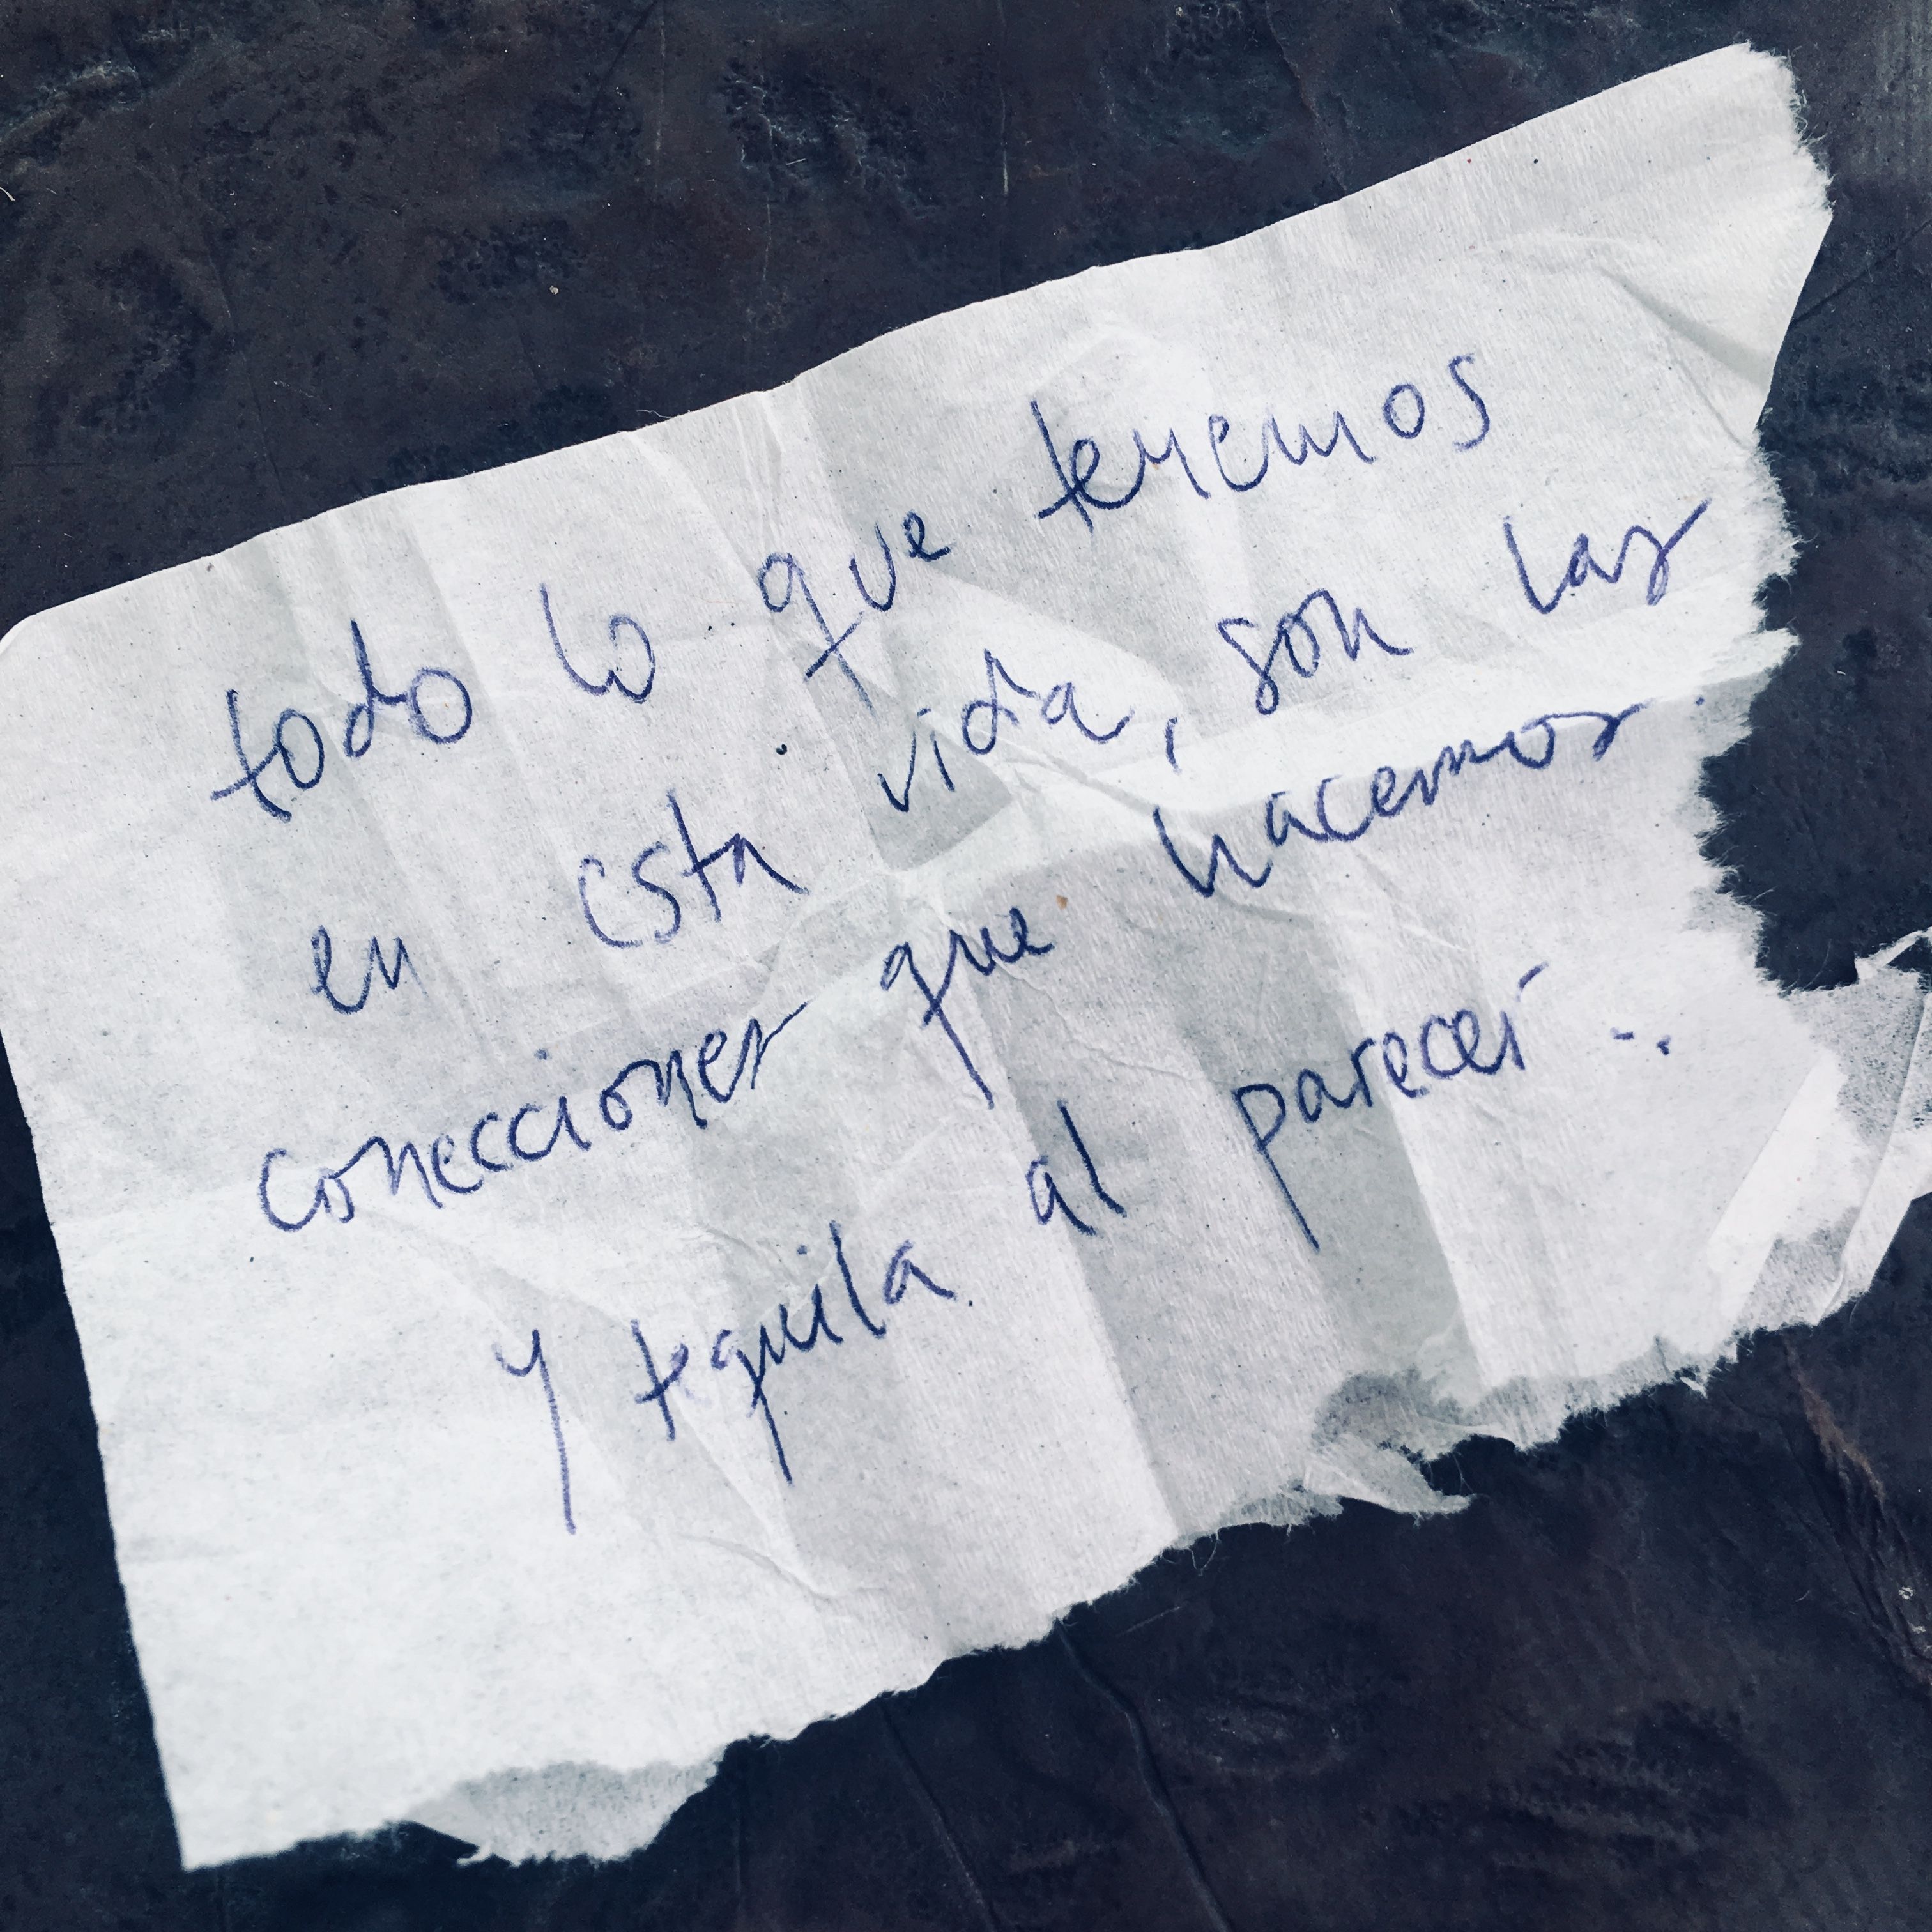 todo lo que tenemos
en esta vida, son las
conecciones que hacemos.
y tequila al parecer...